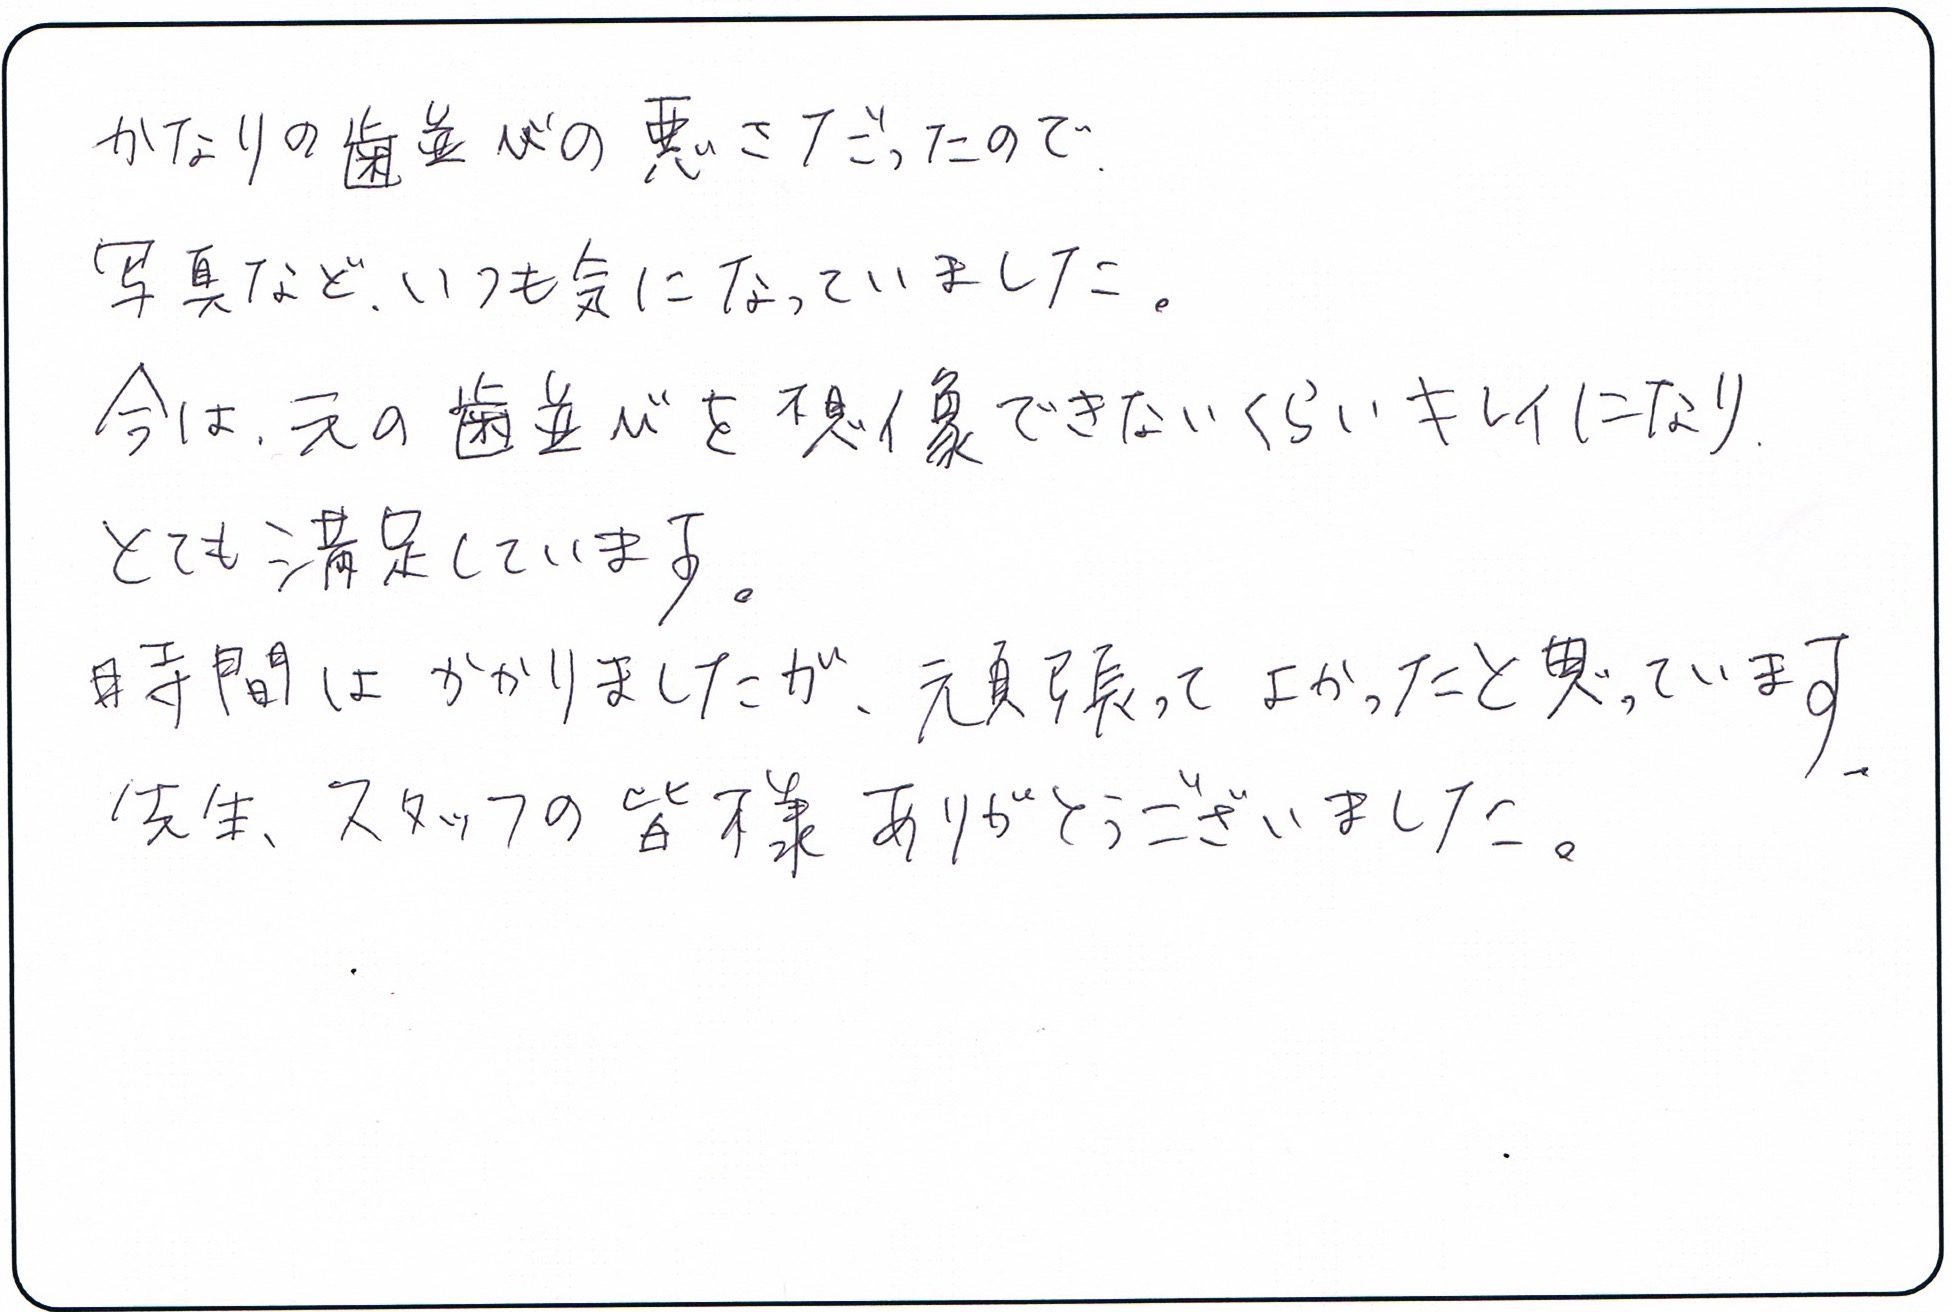 かなりの歯並びの悪さだったので、
写真など、いつも気になっていました。
今は、元の歯並びを想像できないくらいキレイになり、
とても満足しています。
時間はかかりましたが、頑張ってよかったと思っています。
先生、スタッフの皆様ありがとうございました。